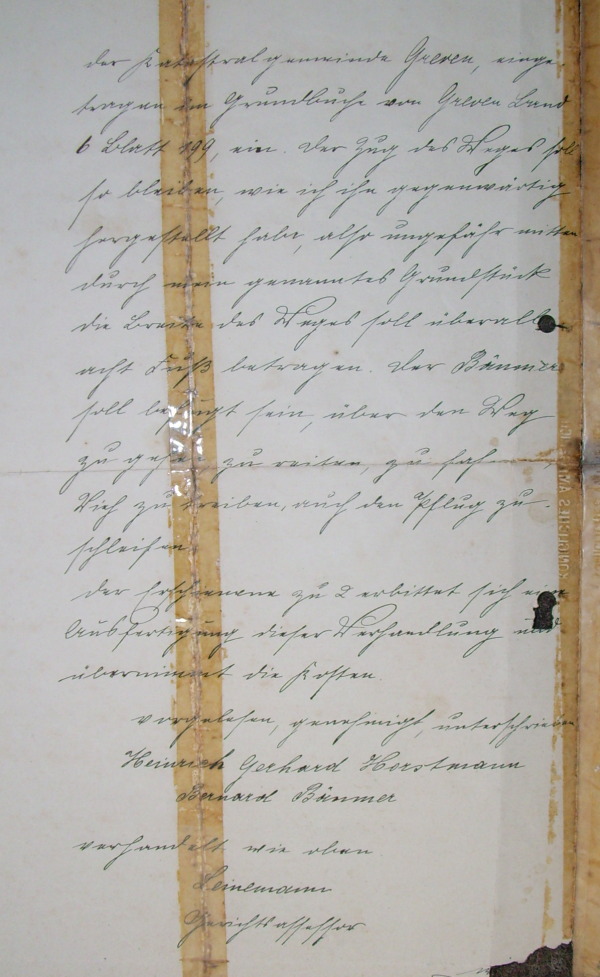 der Katastralgemeinde Greven, einge-
tragen im Grundbuche von Greven Band
6 Blatt 199, ein. Der Zug des Weges soll
so bleiben, wie ich ihn gegenwärtig
hergestellt habe, also ungefähr mitten
durch mein genanntes Grundstück
die Breite des Weges soll überall
acht Fuß betragen. Der Bäumer
soll befugt sein, über den Weg
zu gehen zu reiten, zu fahren,
Vieh zu treiben, auch den Pflug zu
schleifen.
der Erschienene zu 2 erbittet sich eine
Ausfertigung dieser Verhandlung und
übernimmt die Kosten.
vorgelesen, genehmigt, unterschrieben
Heinrich Gerhard Horstmann
Bernard Bäumer
verhandelt wie oben
Leinemann
Gerichtsassessor